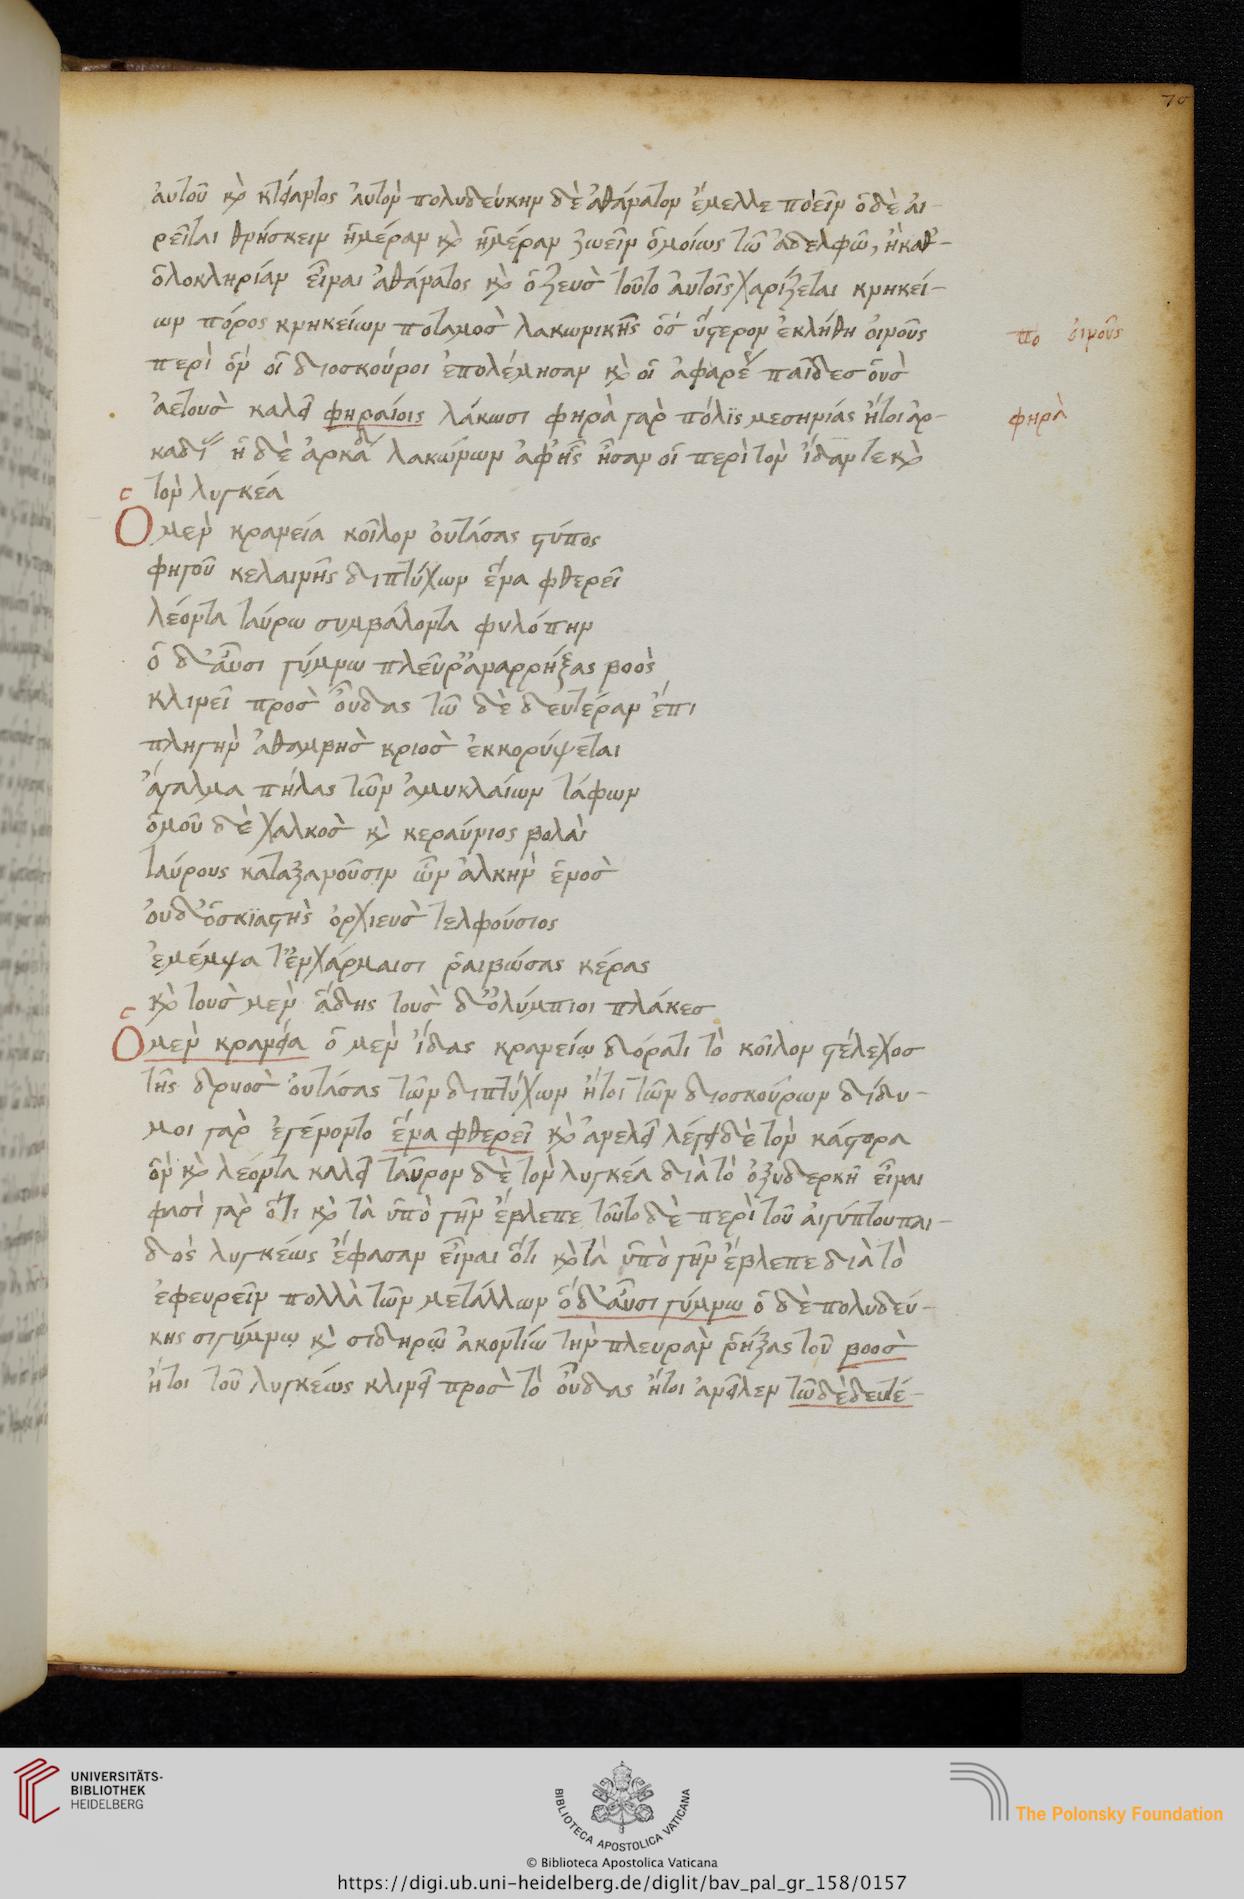 70
αὐτοῦ καὶ κτείναντος αὐτὸν πολυδεύκην δὲ ἀθάνατον ἔμελλε ποιεῖν ὁ δὲ αἱ-
ρεῖται θνήσκειν ἡμέραν καὶ ἡμέραν ζωεῖν ὁμοίως τῶ ἀδελφῶ, ἢ καθ'-
ὁλοκληρίαν εἶναι ἀθάνατος καὶ ὁ ζευσ τοῦτο αὐτοῖς χαρίζεται κνηκεί-
ων πόρος κνηκείων ποταμοσ λακωνικῆς ὅς ὕστερον ἐκλήθη οἰνοῦς
πο οἰνοῦς
περὶ ὃν οἱ διοσκούροι ἐπολέμησαν καὶ οἱ ἀφαρέ παῖδεσ οὓσ
ἀετοὺσ καλεῖ φηραίοις λάκωσι φηρὰ γὰρ πόλϊς μεσηνιάς ἤτοι ἀρ-
φηρὰ
ἡ δὲ λακώνων ἀφ' ἧς ἦσαν οἱ περὶ τὸν ἴδαν τε καὶ
τὸν λυγκέα
Ὁ μὲν κρανεία κοῖλον οὐτάσας στύπος
φηγοῦ κελαινῆς διπτύχων ἕνα φθερεῖ
λέοντα ταύρω συμβάλοντα φυλόπην
ὁ δ' αὖσι γύμνω πλεῦρ' ἀναρρήξας βοός
κλινεῖ προσ οὖδας τῶ δὲ δευτέραν ἔπι
πληγὴν ἀθαμβησ κριοσ ἐκκορύψεται
ἄγαλμα πήλας τῶν ἀμυκλαίων τάφων
ὁμοῦ δὲ χαλκοσ καὶ κεραύνιος βολαὶ
ταύρους καταξανοῦσιν ὧν ἀλκὴν ἑνοσ
οὐδ' ὁ σκϊαστὴς ὀρχιευσ τελφούσιος
ἐμέμψα τ' ἐν χάρμαισι ῥαιβώσας κέρας
καὶ τουσ μὲν ἅδης τουσ δ' ὀλύμπιοι πλάκεσ
Ὁ μὲν κρανεία ὁ μὲν ἴδας κρανείῳ δόρατι τὸ κοῖλον στέλεχοσ
τῆς δρυοσ οὐτάσας τῶν διπτύχων ἤτοι τῶν διοσκούρων δίδυ-
μοι γὰρ ἐγένοντο ἕνα φθερεῖ καὶ ἀνελεῖ λέγει δὲ τὸν κάστορα
ὃν καὶ λέοντα καλεῖ ταῦρον δὲ τὸν λυγκέα διὰ τὸ ὀξυδερκῆ εἶναι
φασὶ γὰρ ὅτι καὶ τὰ ὑπὸ γῆν ἔβλεπε τοῦτο δὲ περὶ τοῦ αἰγύπτου παι-
δός λυγκέως ἔφασαν εἶναι ὅτι καὶ τὰ ὑπὸ γῆν ἔβλεπε διὰ τὸ
ἐφευρεῖν πολλὰ τῶν μετάλλων ὁ δ' αὖσι γύμνω ὁ δὲ πολυδεύ-
κης σιγύμνῳ καὶ σιδηρῶ ἀκοντίω τὴν πλευρὰν ῥήξας τοῦ βοοσ
ἤτοι τοῦ λυγκέως κλινεῖ προσ τὸ οὖδας ἤτοι ἀνεῖλεν τῶ δὲ δευτέ-
UNIVERSITÄTS-
BIBLIOTHEK
HEIDELBERG
BIBLIOTECA APOSTOLICA VATICANA
The Polonsky Foundation
© Biblioteca Apostolica Vaticana
https://digi.ub.uni-heidelberg.de/diglit/bav_pal_gr_158/0157